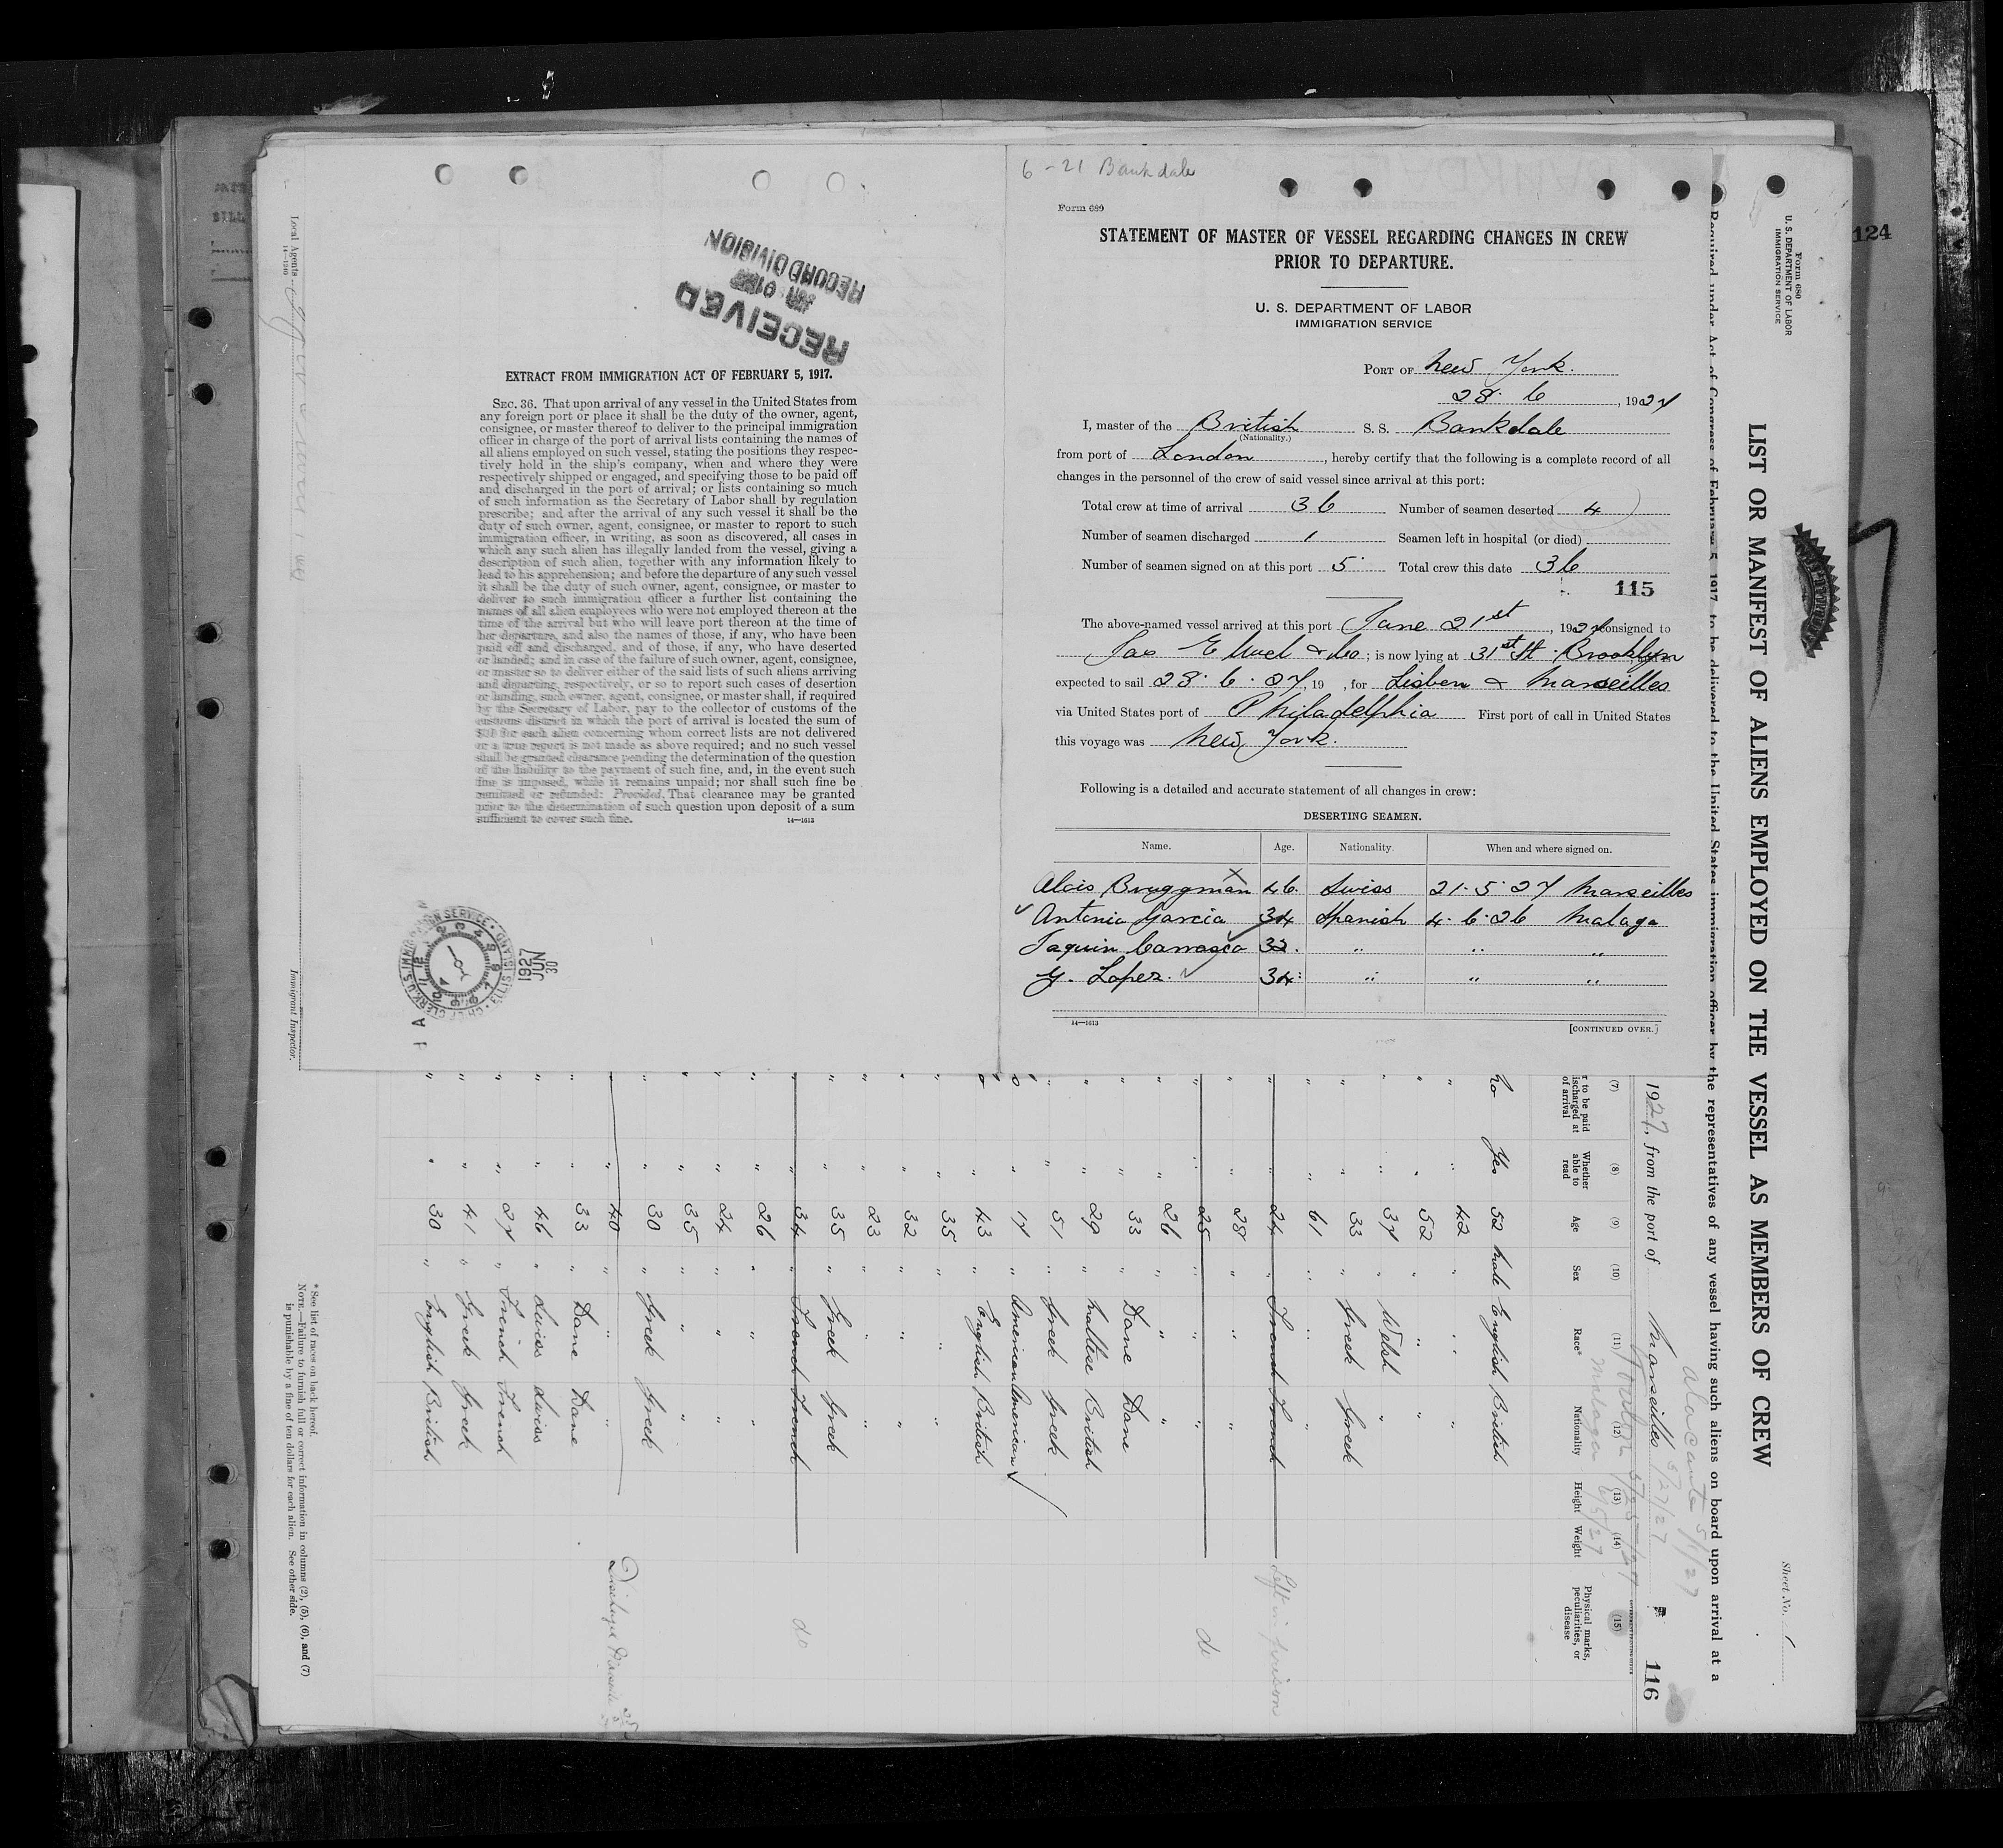 6 - 21 Bankdale
Form 689
STATEMENT OF MASTER OF VESSEL REGARDING CHANGES IN CREW
PRIOR TO DEPARTURE.
U. S. DEPARTMENT OF LABOR
IMMIGRATION SERVICE
PORT OF New York.
28. 6, 1927
I, master of the British S. S. Bankdale
(Nationality.)
from port of London, hereby certify that the following is a complete record of all
changes in the personnel of the crew of said vessel since arrival at this port:
Total crew at time of arrival 36 Number of seamen deserted 4
Number of seamen discharged 1 Seamen left in hospital (or died)
Number of seamen signed on at this port 5 Total crew this date 36
115
The above-named vessel arrived at this port June 21st, 1927 consigned to
Jas E & Co; is now lying at 31st St. Brooklyn
expected to sail 28. 6. 27, 19 , for Lisbon & Marseilles
via United States port of Philadelphia First port of call in United States
this voyage was New York.
Following is a detailed and accurate statement of all changes in crew:
DESERTING SEAMEN.
Name. Age. Nationality. When and where signed on.
Alois Bruggman 46. Swiss 21. 5. 27 Marseilles
Antonio Garcia 34 Spanish 4. 6. 26 Malaga
Jaquin Carrasco 33. " " "
Y. Lopez. 34. " " "
14—1613
[CONTINUED OVER.]
RECEIVED
RECORD DIVISION
EXTRACT FROM IMMIGRATION ACT OF FEBRUARY 5, 1917.
SEC. 36. That upon arrival of any vessel in the United States from
any foreign port or place it shall be the duty of the owner, agent,
consignee, or master thereof to deliver to the principal immigration
officer in charge of the port of arrival lists containing the names of
all aliens employed on such vessel, stating the positions they respec-
tively hold in the ship's company, when and where they were
respectively shipped or engaged, and specifying those to be paid off
and discharged in the port of arrival; or lists containing so much
of such information as the Secretary of Labor shall by regulation
prescribe; and after the arrival of any such vessel it shall be the
duty of such owner, agent, consignee, or master to report to such
immigration officer, in writing, as soon as discovered, all cases in
which any such alien has illegally landed from the vessel, giving a
description of such alien, together with any information likely to
lead to his apprehension; and before the departure of any such vessel
it shall be the duty of such owner, agent, consignee, or master to
deliver to such immigration officer a further list containing the
names of all alien employees who were not employed thereon at the
time of the arrival but who will leave port thereon at the time of
her departure, and also the names of those, if any, who have been
paid off and discharged, and of those, if any, who have deserted
or landed; and in case of the failure of such owner, agent, consignee,
or master so to deliver either of the said lists of such aliens arriving
and departing, respectively, or so to report such cases of desertion
or landing, such owner, agent, consignee, or master shall, if required
by the Secretary of Labor, pay to the collector of customs of the
customs district in which the port of arrival is located the sum of
$10 for each alien concerning whom correct lists are not delivered
or a true report is not made as above required; and no such vessel
shall be granted clearance pending the determination of the question
of the liability to the payment of such fine, and, in the event such
fine is imposed, while it remains unpaid; nor shall such fine be
remitted or refunded: Provided, That clearance may be granted
prior to the determination of such question upon deposit of a sum
sufficient to cover such fine.
14—1613
1927
JUN
30
Local Agents
Immigrant Inspector.
124
Form 680
U. S. DEPARTMENT OF LABOR
IMMIGRATION SERVICE
Sheet No. 1
LIST OR MANIFEST OF ALIENS EMPLOYED ON THE VESSEL AS MEMBERS OF CREW
Required under Act of Congress of February 5, 1917, to be delivered to the United States immigration officer by the representatives of any vessel having such aliens on board upon arrival at a
Alacante 5/1/27
1927, from the port of Marseilles 5/27/27
116
Malaga
(7) (8) (9) (10) (11) (12) (13) (14) (15)
r to be paid
ischarged at
of arrival
Whether
able to
read
Age
Sex
Race*
Nationality
Height
Weight
Physical marks,
peculiarities, or
disease
No Yes 52 Male English British
" " 42 " " "
" " 52 " " "
" " 37 " Welsh "
" " 33 " Greek Greek
" " 61 " " "
" " 24 " French French Left in prison
" " 28 " " "
" " 25 " " " do
" " 26 " " "
" " 33 " Dane Dane
" " 29 " Maltese British
" " 51 " Greek Greek
" 17 " American American
" 43 " English British
" " 35 " " "
" " 32 " " "
" " 23 " " "
" " 35 " Greek Greek
" " 34 " French French do
" " 26 " " "
" " 24 " " "
" " 35 " " "
" " 30 " Greek Greek
" 40 " " "
" " 33 " Dane Dane
" " 46 " Swiss Swiss
" " 27 " French French
" " 41 " Greek Greek
" " 30 " English British
* See list of races on back hereof.
NOTE.—Failure to furnish full or correct information in columns (2), (5), (6), and (7)
is punishable by a fine of ten dollars for each alien. See other side.